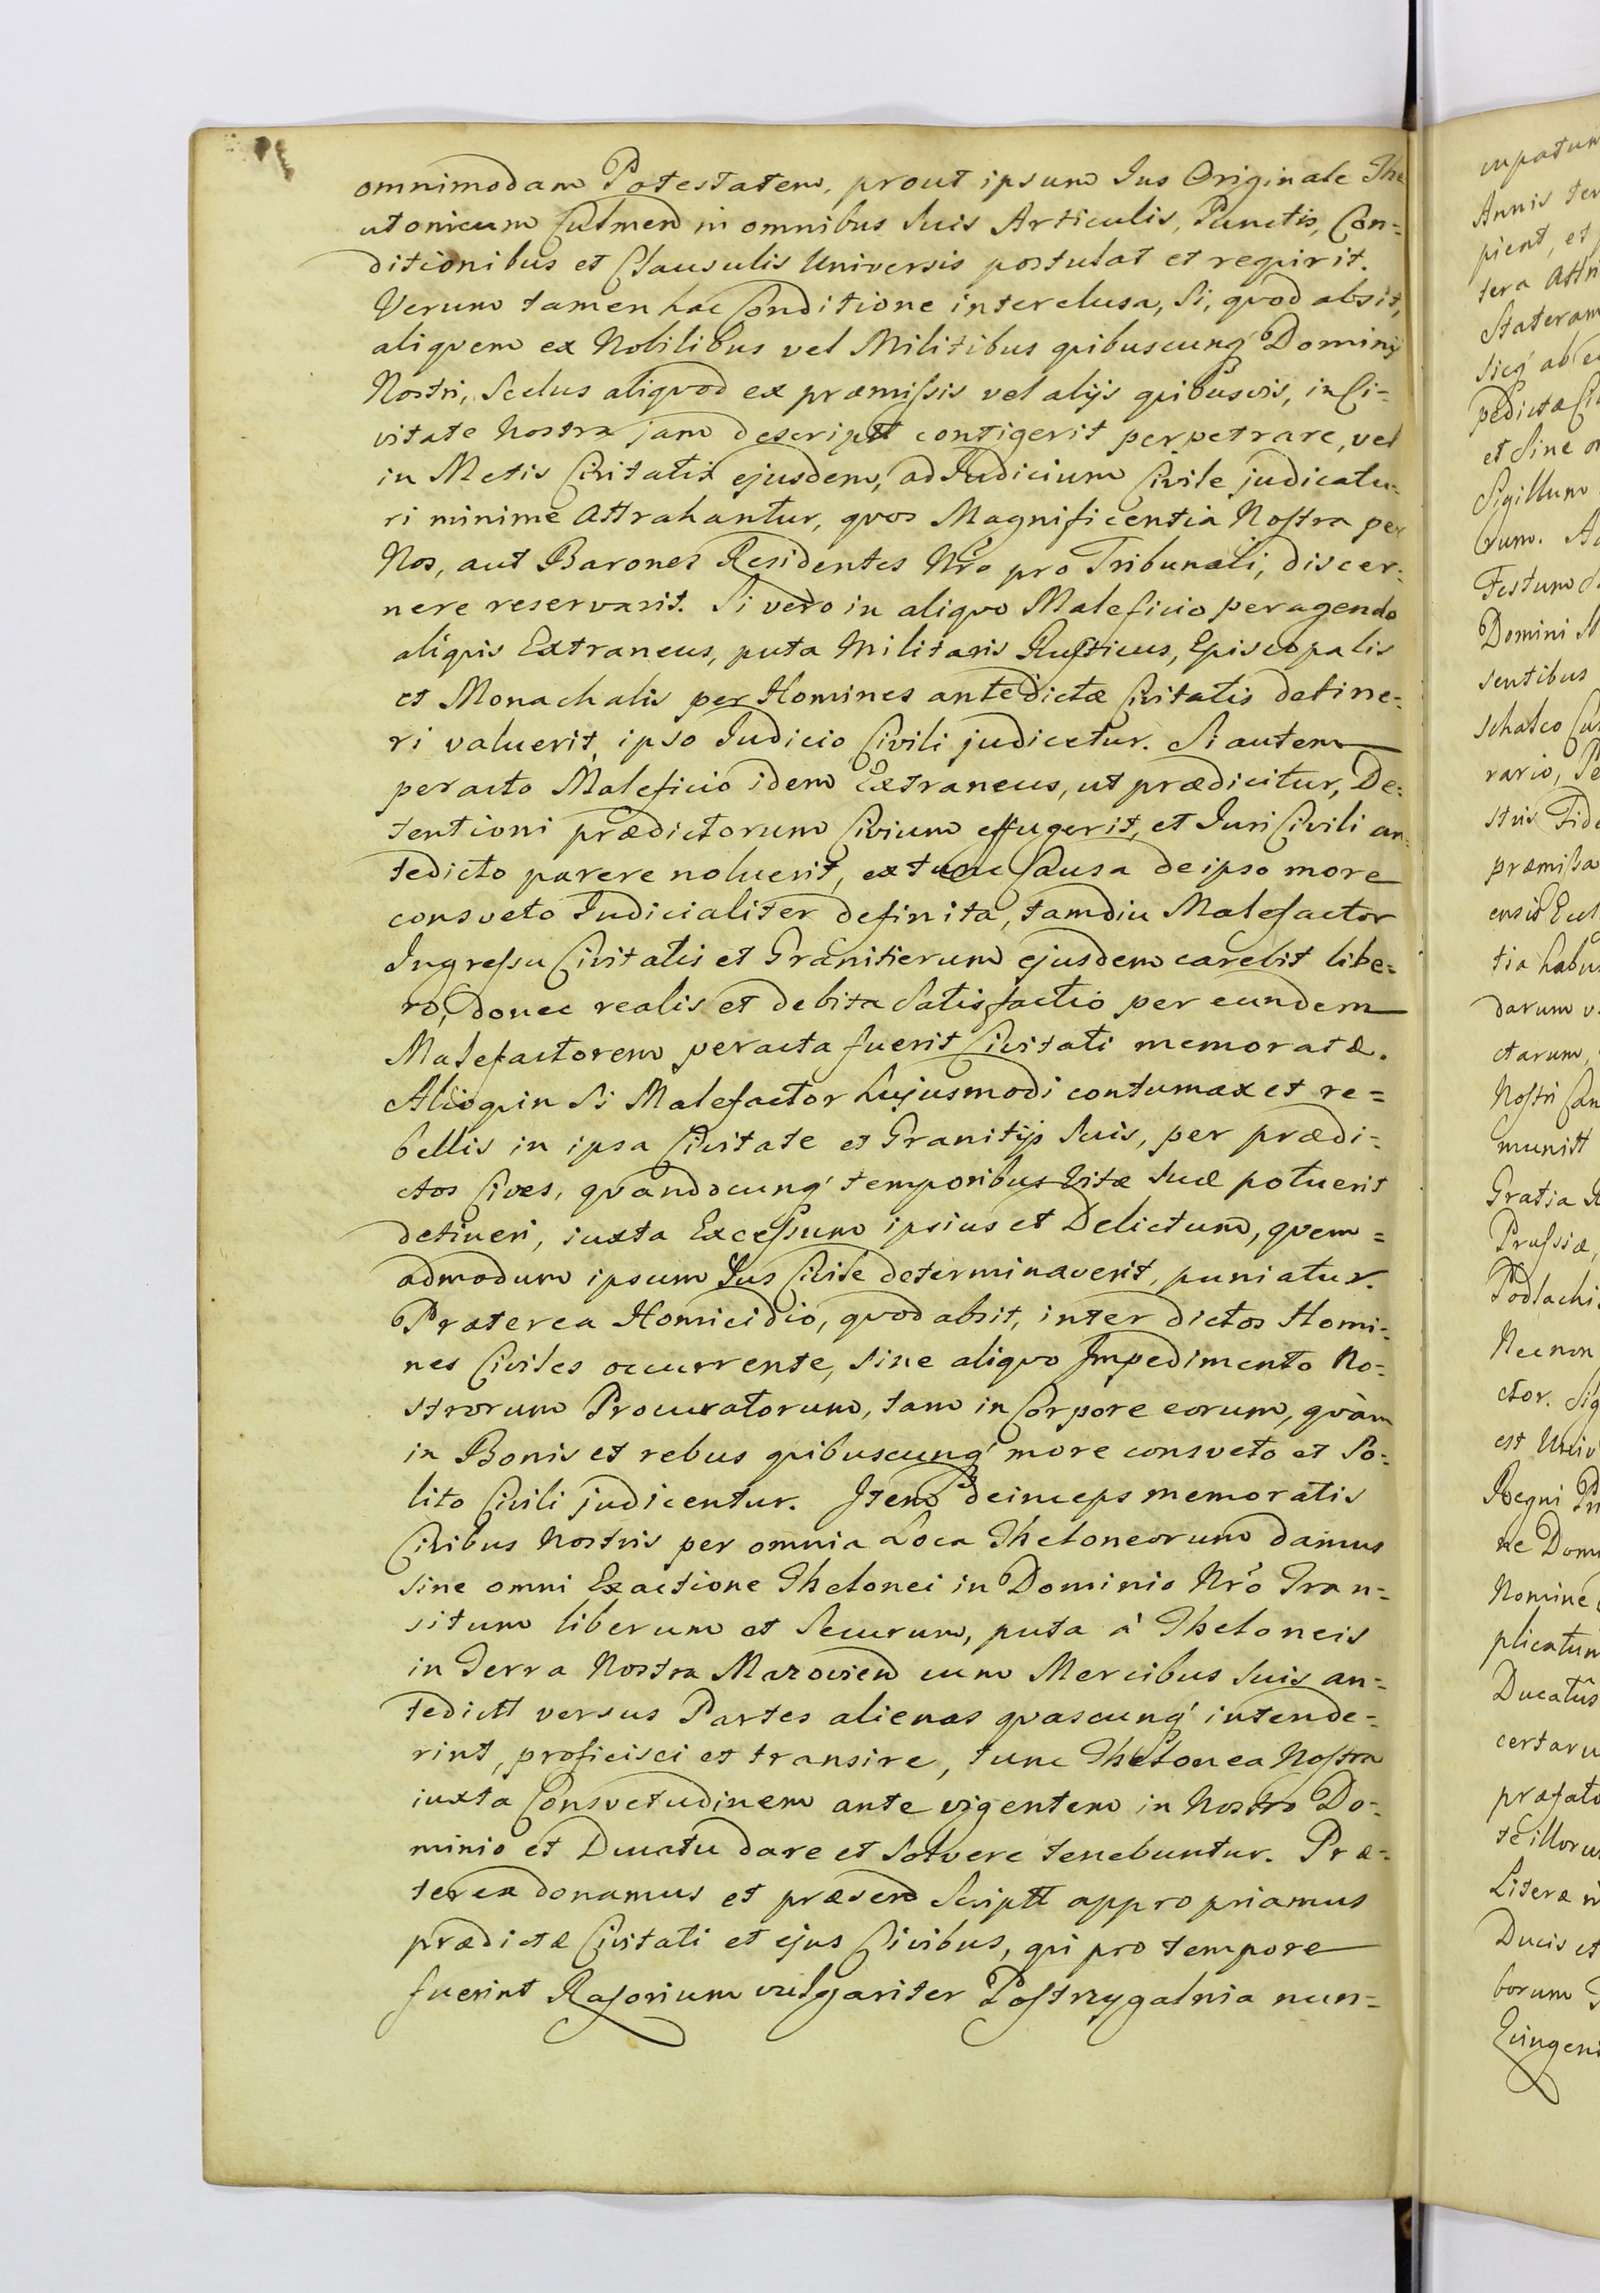 omnimodam Potestatem, prout ipsum Jus Originale The
utonicum Culmen in omnibus suis Articulis, Punctis, Con=
ditionibus et Clausulis Universis postulat et reqvirit.
Verum tamen hac Conditione interclusa, Si, qvod absit,
aliqvem ex Nobilibus vel Militibus qvibuscunq' Dominij
Nostri, Scelus aliqvod ex præmissis vel alijs qvibusvis, in Ci=
vitate Nostra jam descriptt contigerit perpetrare, vel
in Metis Civitatis ejusdem, ad Judicium Civile judicatu=
ri minime Attrahantur, qvos Magnificentia Nostra per
Nos, aut Barones Residentes Nr̃o pro Tribunali, discer=
nere reservavit. Si vero in aliqvo Maleficio peragendo
aliqvis Extraneus, puta Militaris Rusticus, Episcopalis
et Monachalis per Homines antedictæ Civitatis detine=
ri valuerit, ipso Judicio Civili judicetur. Si autem
peracto Maleficio idem Extraneus, ut prædicitur, De=
tentioni prædictorum Civium effugerit, et Juri Civili an=
tedicto parere noluerit, extunc Causa de ipso more
consveto Judicialiter definita, tamdiu Malefactor
Ingressu Civitatis et Granitierum ejusdem carebit libe=
ro, donec realis et debita Satisfactio per eundem
Malefactorem peracta fuerit Civitati memoratæ.
Alioqvin Si Malefactor hujusmodi contumax et re=
bellis in ipsa Civitate et Granitijs Suis, per prædi=
ctos Cives, qvandocunq' temporibus Vitæ Suæ potuerit
detineri, iuxta Excessum ipsius et Delictum, qvem=
admodum ipsum Jus Civile determinaverit, puniatur.
Præterea Homicidio, qvod absit, inter dictos Homi=
nes Civiles occurrente, Sine aliqvo Impedimento No=
strorum Procuratorum, tam in Corpore eorum, qvàm
in Bonis et rebus qvibuscunq' more consveto et So=
lito Civili judicentur. Item deinceps memoratis
Civibus Nostris per omnia Loca Theloneorum damus
Sine omni Exactione Thelonei in Dominio Nr̃o Tran=
situm liberum et Securum, puta à Theloneis
in Terra Nostra Mazovien cum Mercibus Suis an=
tedictt versus Partes alienas qvascunq' intende=
rint, proficisci et transire, tunc Thelonea Nostra
iuxta Consvetudinem ante vigentem in Nostro Do=
minio et Ducatu dare et Solvere tenebuntur. Præ=
terea donamus et præsen Scriptt appropriamus
prædictæ Civitati et ejus Civibus, qvi pro tempore
fuerint Rasorium vulgariter Postrzygalnia nun=
Annis ter
pient, et
tera Attri
Stateram
Sicq' ab e
et Sine o
Sigillum
Domini
sentibus
rario, Pe
stris Fide
præmissa
tia habu
darum v
ctarum,
Nostri Can
munitt
Gratia R
Prussiæ,
Podlachi
Necnon
ctor. Sig
est Univ
Regni P
ne Domi
Nomine
plicatum
Ducatûs
certaru
præfato
te illoru
Literæ
Ducis et
borum